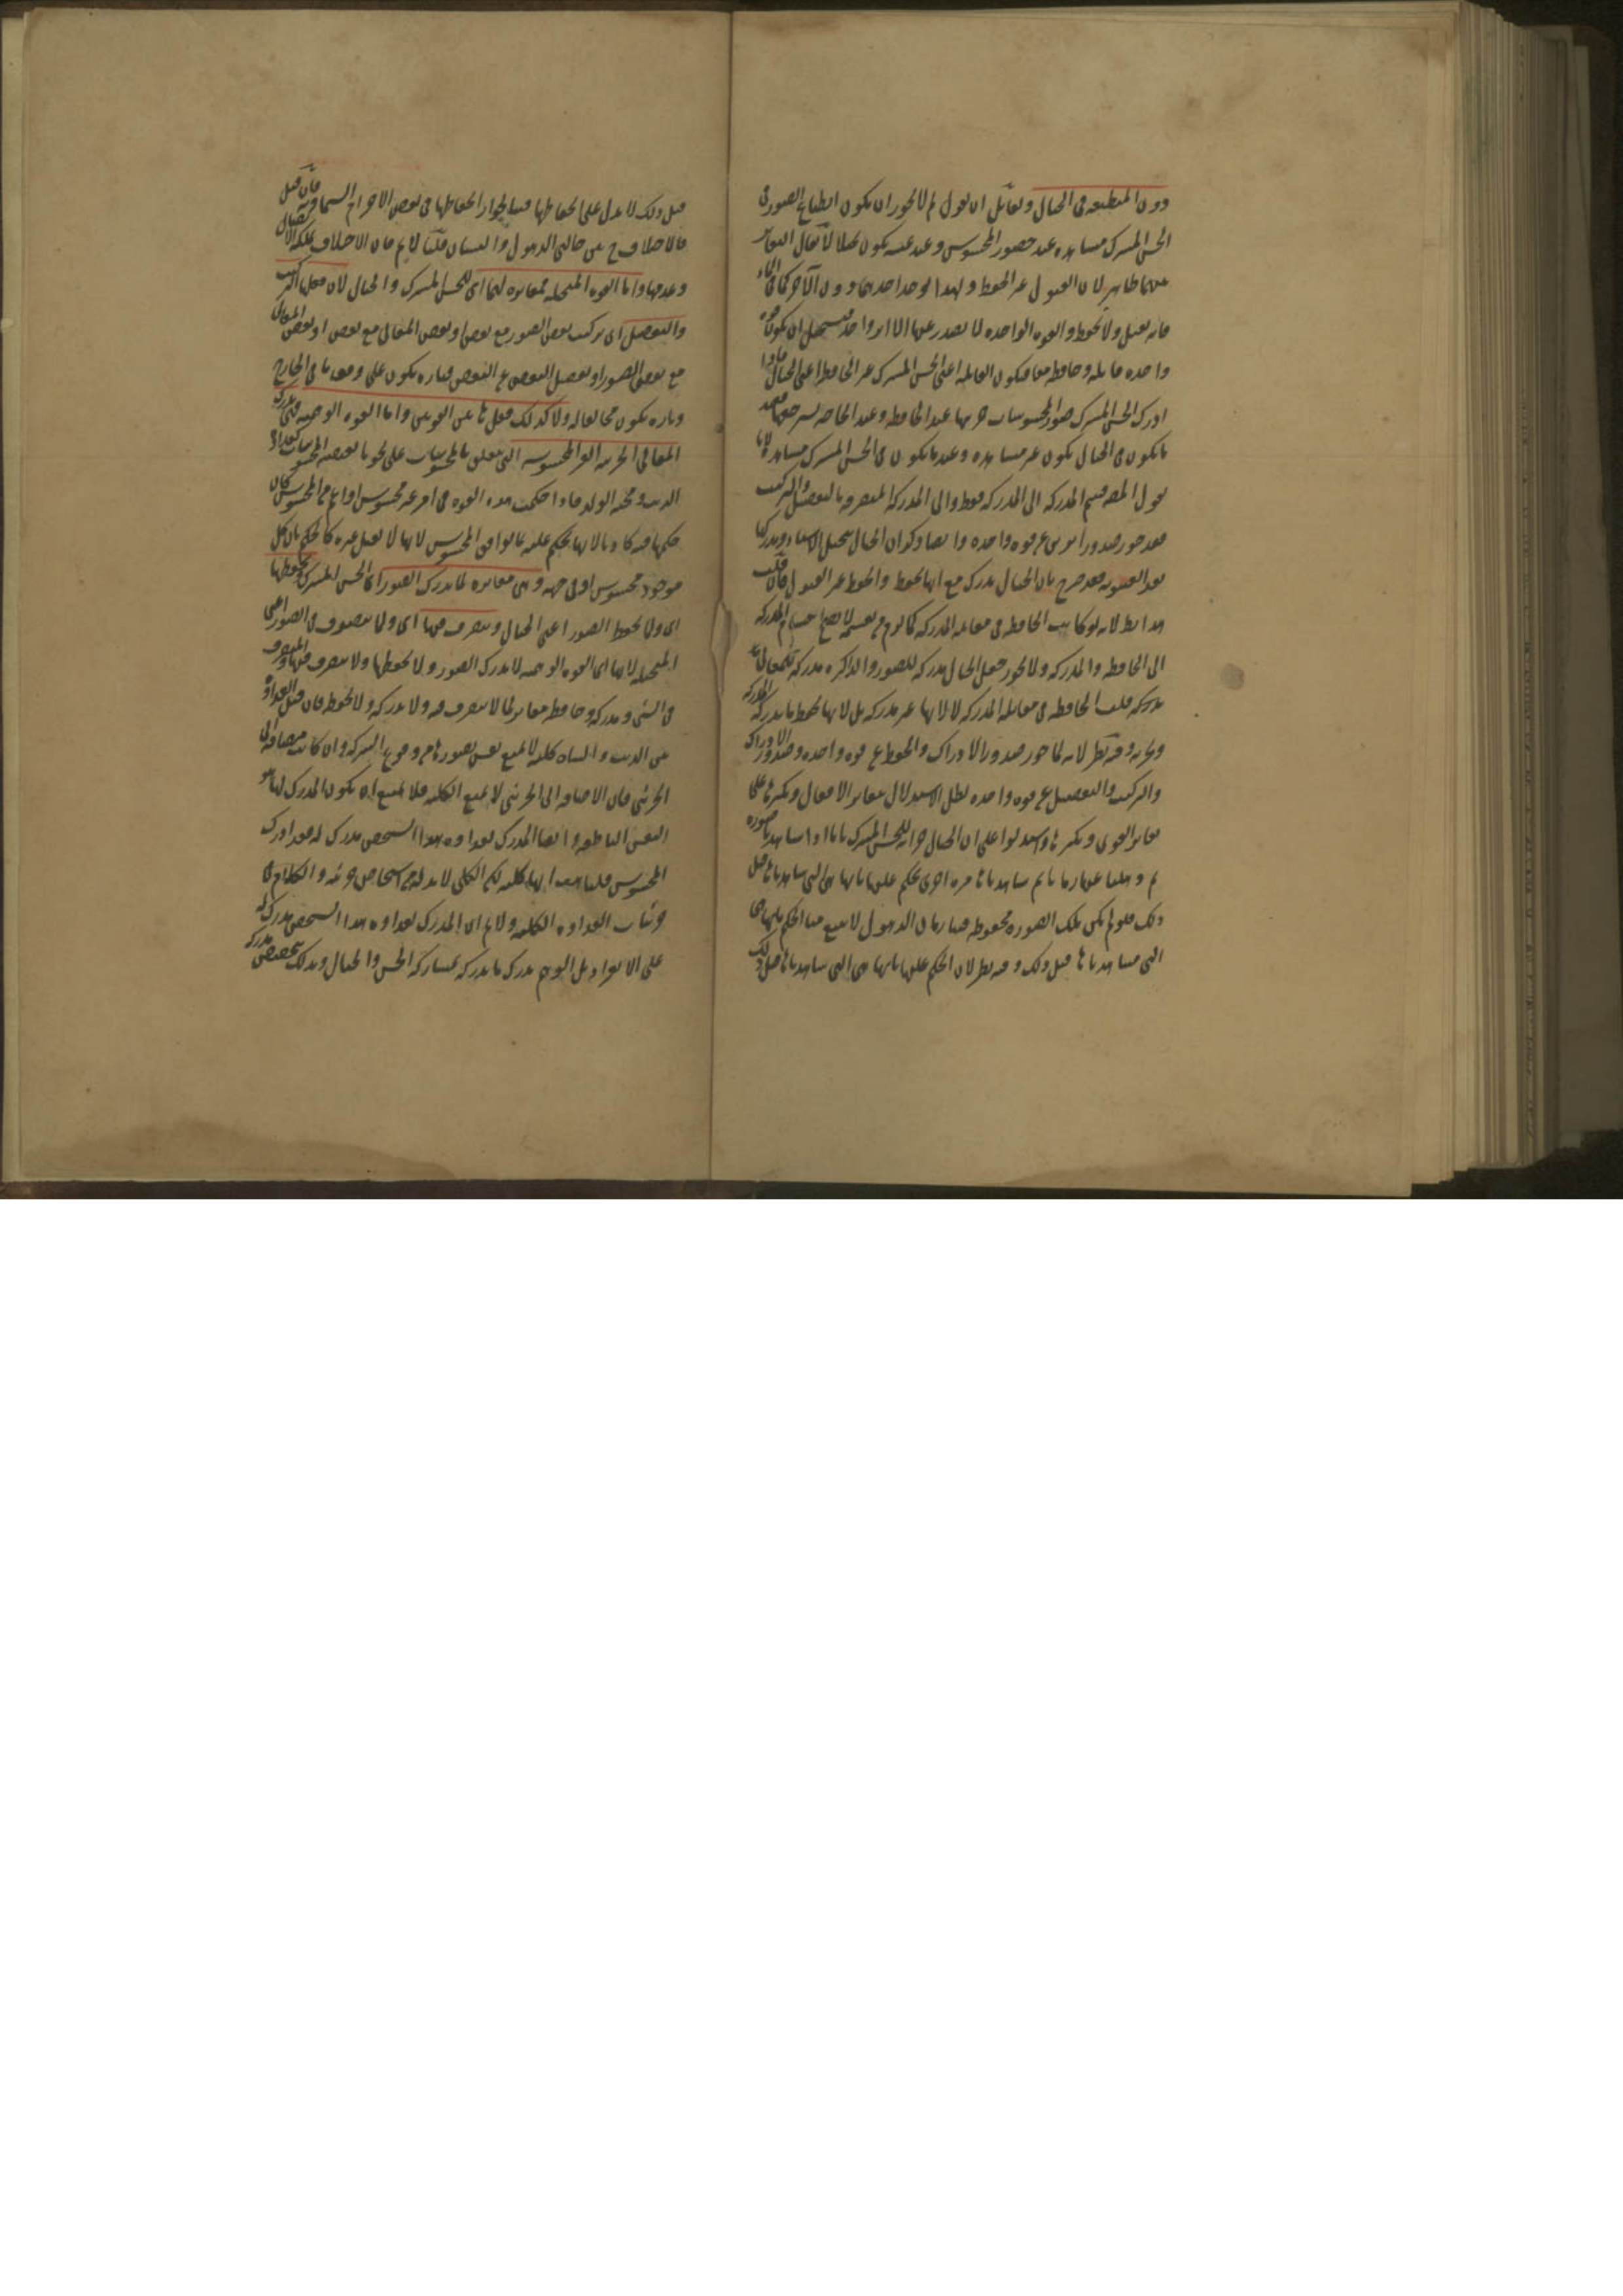 دون المنطبعة فى الخيال ولقائل ان يقول لم لا يجوز ان يكون انطباع الصور فى
الحس المشترك مشاهدة عند حضور المحسوس وعند غيبته يكون تخيلا لا يقال التغاير
بينهما ظاهر لان القبول غير الحفظ ولهذا يوجد احدهما دون الآخر كما فى الماء
فانه يقبل ولا يحفظ والقوة الواحدة لا يصدر عنها الا اثر واحد فيستحيل ان يكون قوة
واحدة قابلة وحافظة معا فيكون القابلة اعنى الحس المشترك غير الحافظة اعنى الخيال فاذا
ادرك الحس المشترك صور المحسوسات خزنها عند الحافظة وعند الحاجة يسترجعها فعند
ما يكون فى الخيال يكون غير مشاهدة وعند ما يكون فى الحس المشترك مشاهدة لانا
نقول المص قسم المدركة الى المدركة فقط والى المدركة المتصرفة بالتفصيل والتركيب
فقد جوز صدور اثرين عن قوة واحدة وايضا ذكر ان الخيال يتخيل الاشياء ويدركها
بعد الغيبوبة فقد صرح بان الخيال يدرك مع انها يحفظ والحفظ غير القبول فان قلت
هذا بط لانه لو كانت الحافظة فى مقابلة المدركة كما لوح فى تقسيمه لا يصح انقسام المدركة
الى الحافظة والمدركة ولا يجوز جعل الخيال مدركة للصور والذاكرة مدركة للمعانى
مدركة قلت الحافظة فى مقابلة المدركة لا لانها غير مدركة بل لانها تحفظ ما يدركه المدركة
وتخزنه وفيه نظر لانه لما جوز صدور الادراك والحفظ عن قوة واحدة وصدور الادراك
والتركيب والتفصيل عن قوة واحدة بطل الاستدلال بتغاير الافعال وتكثرها على
تغاير القوى وتكثرها واستدلوا على ان الخيال خزانة للحس المشترك بانا اذا شاهدنا صورة
ثم ذهلنا عنها زمانا ثم شاهدناها مرة اخرى نحكم عليها بانها هى التى شاهدناها قبل
ذلك فلو لم يكن تلك الصورة محفوظة فينا زمان الذهول لامتنع منا الحكم بانها هى
التى شاهدناها قبل ذلك وفيه نظر لان الحكم عليها بانها هى التى شاهدناها قبل ذلك
قبل ذلك لا يدل على انحفاظها فينا لجواز انحفاظها فى بعض الاجرام السماوية فان قيل
فالاختلاف ح بين حالتى الذهول والنسيان قلنا لا نم فان الاختلاف بملكة الاتصال
وعدمها واما القوة المتخيلة فمغايرة لهما اى للحس المشترك والخيال لان فعلها التركيب
والتفصيل اى تركيب بعض الصور مع بعض وبعض المعانى مع بعض او بعض المعانى
مع بعض الصور او تفصيل البعض عن البعض فتارة يكون على وفق ما فى الخارج
وتارة يكون مخالفا له ولا كذلك فعل هاتين القوتين واما القوة الوهمية فهى تدرك
المعانى الجزئية الغير المحسوسة التى تتعلق بالمحسوسات على نحو ما يقتضيه المحسوسات كعداوة
الذئب ومحبة الولد فاذا حكمت هذه القوة فى امر غير محسوس او اعم من المحسوس كان
حكمها فيه كاذبا لانها تحكم عليه بما يوافق المحسوس لانها لا تقبل غيره كالحكم بان كل
موجود محسوس او فى جهة وهى مغايرة لما يدرك الصور اى الحس المشترك ويحفظها
اى ولما يحفظ الصور اعنى الخيال ويتصرف فيها اى ولما يتصرف فى الصور اعنى
المتخيلة لانها اى القوة الوهمية لا تدرك الصور ولا تحفظها ولا تتصرف فيها والمتصرف
فى الشئ ومدركه وحافظه مغاير لما لا يتصرف فيه ولا يدركه ولا يحفظه فان قيل العداوة
بين الذئب والشاة كلية لا يمنع نفس تصورها من وقوع الشركة وان كانت مضافة الى
الجزئى فان الاضافة الى الجزئى لا تمنع الكلية فلا يمتنع ان يكون المدرك لها هو
النفس الناطقة وايضا المدرك لعداوة هذا الشخص مدرك له فقد ادرك
المحسوس قلنا هب انها كلية لكن الكلى لابد له من اشخاص جزئية والكلام فى
جزئيات العداوة الكلية ولا نم ان المدرك لعداوة هذا الشخص مدرك له
على الانفراد بل الوهم يدرك ما يدركه بمشاركة الحس والخيال وبذلك يتخصص مدركه